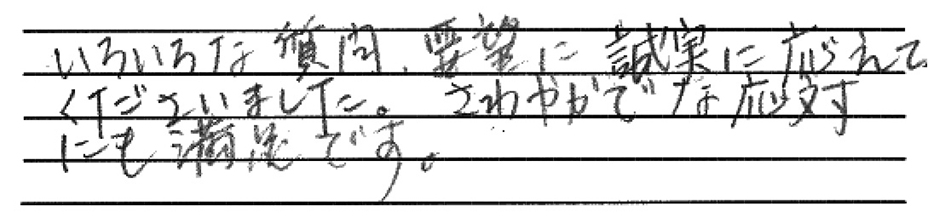 いろいろな質問、要望に誠実に応えて
くださいました。さわやかでな応対
にも満足です。